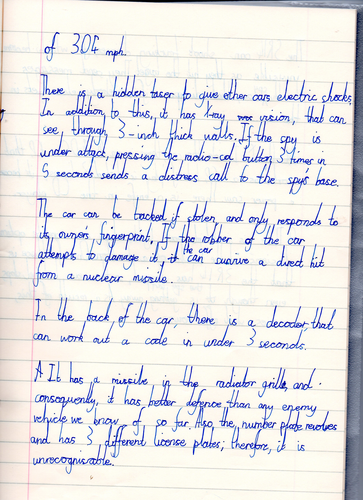 of 304 mph.
There is a hidden taser to give other cars electric shocks.
In addition to this, it has X-ray vision, that can
see through 3-inch thick walls. If the spy is
under attack, pressing the radio-cal button 3 times in
5 seconds sends a distress call to the spy's base.
The car can be tracked if stolen, and only responds to
its owner's fingerprint. If the robber of the car
attempts to damage it, the car can survive a direct hit
from a nuclear missile.
In the back of the car, there is a decoder, that
can work out a code in under 3 seconds.
It has a missile in the radiator grille, and
consequently, it has better defence than any enemy
vehicle we know of so far. Also, the number plate revolves
and has 3 different license plates; therefore, it is
unrecognisable.